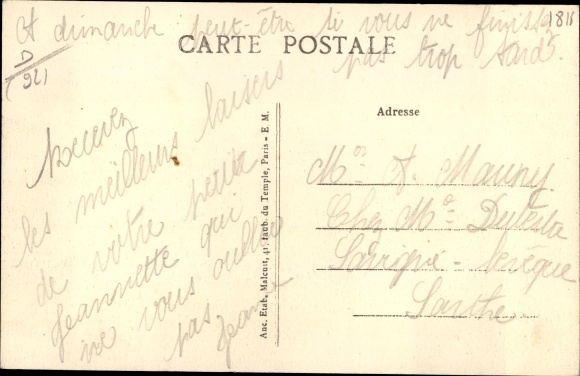 A dimanche peut-être si vous ne finissez
pas trop tard
1815
CARTE POSTALE
Recevez
les meilleurs baisers
de votre petite
Jeannette qui
ne vous oublie
pas
Jeanne
Anc. Etab. Malcuit, 41, faub. du Temple, Paris - E. M.
Adresse
Mr A. Mauny
Chez Mr
Savigné-l'évêque
Sarthe